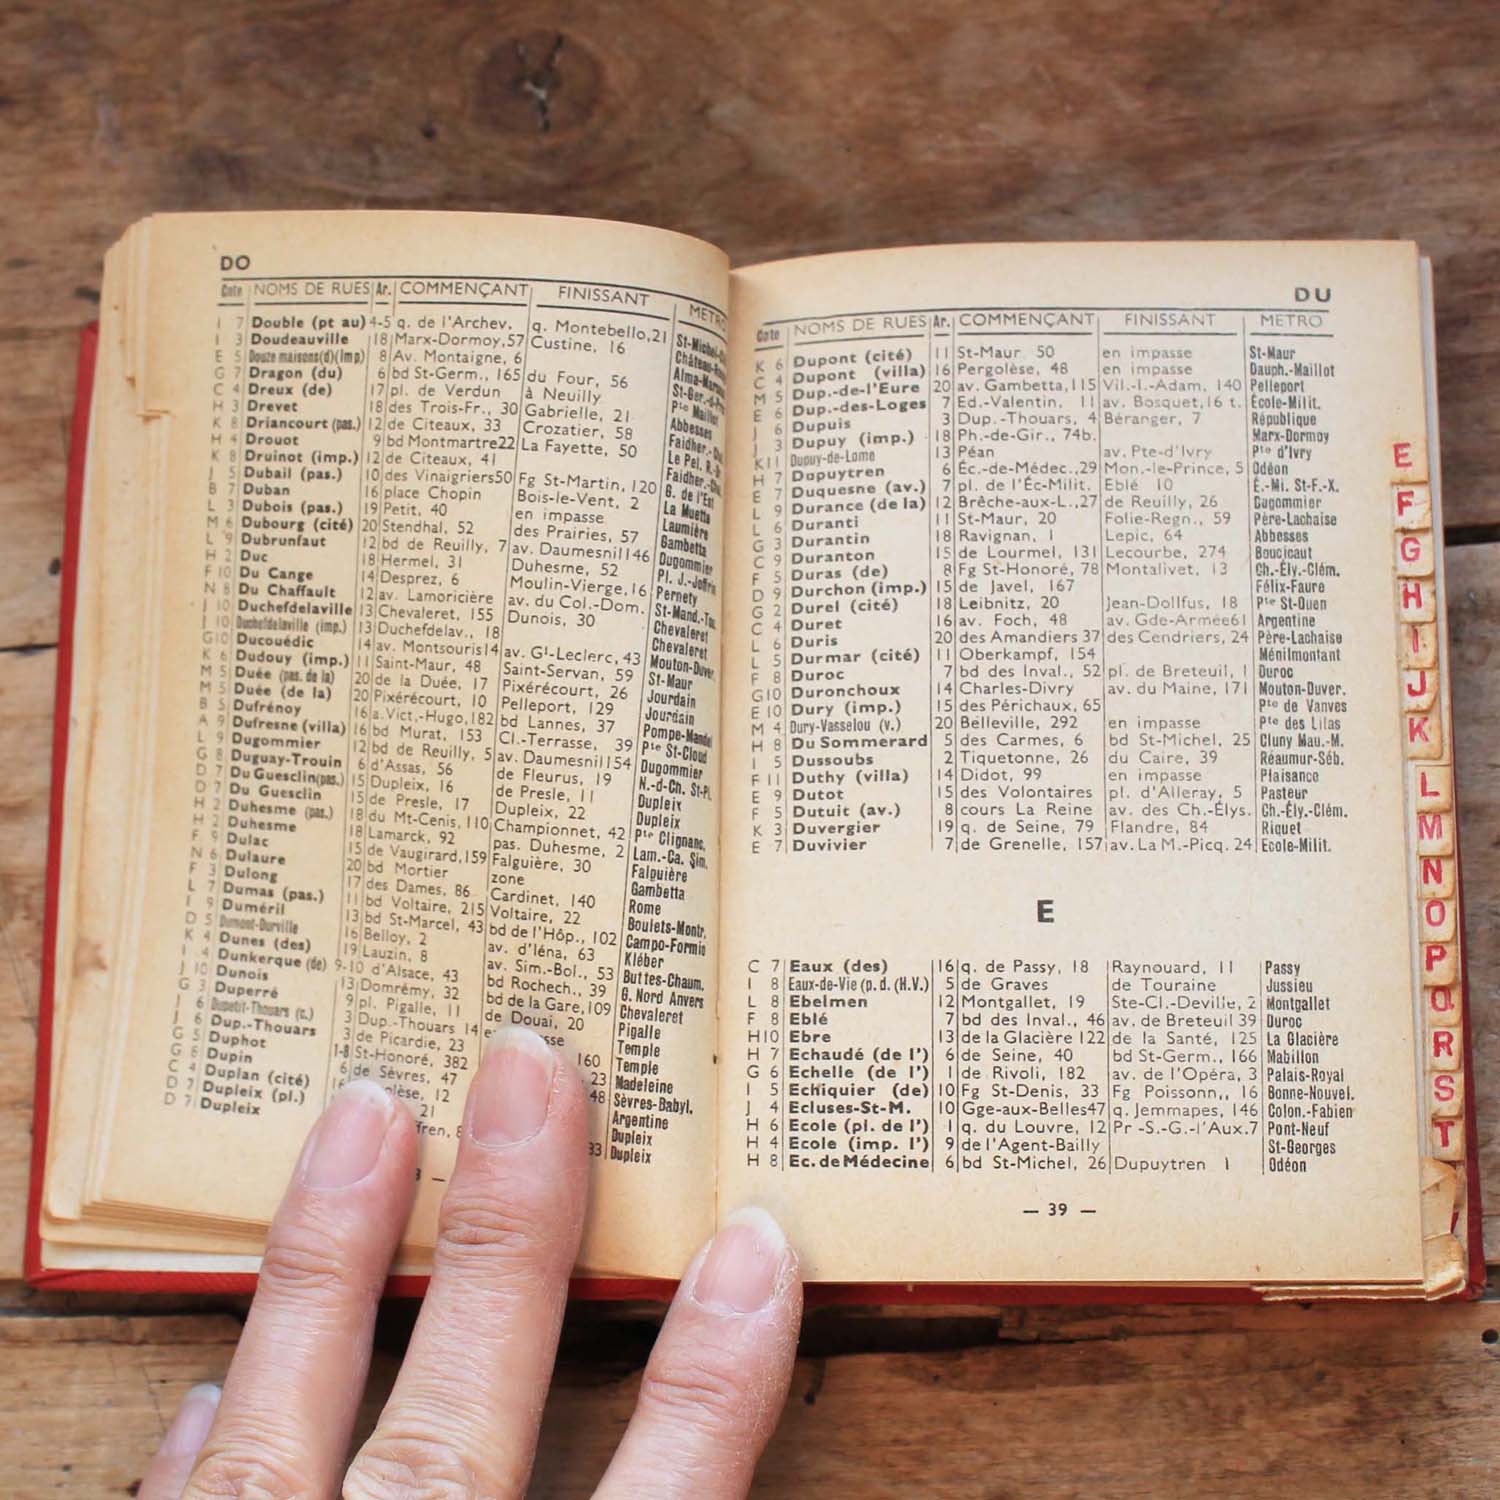 DO
Cote NOMS DE RUES Ar. COMMENÇANT FINISSANT METRO
I 7 Double (pt au) 4-5 q. de l'Archev. q. Montebello,21 St-Michel
I 3 Doudeauville 18 Marx-Dormoy,57 Custine, 16 Château-
E 5 Douze maisons(d)(Imp) 8 Av. Montaigne, 6 Alma-
G 7 Dragon (du) 6 bd St-Germ., 165 du Four, 56 St-Ger.-d-
C 4 Dreux (de) 17 pl. de Verdun à Neuilly Pte Maillot
H 3 Drevet 18 des Trois-Fr., 30 Gabrielle, 21 Abbesses
K 8 Driancourt (pas.) 12 de Citeaux, 33 Crozatier, 58 Faidher.-
H 4 Drouot 9 bd Montmartre22 La Fayette, 50 Le Pel. R.-
K 8 Druinot (imp.) 12 de Citeaux, 41 Faidher.-
J 5 Dubail (pas.) 10 des Vinaigriers50 Fg St-Martin, 120 G. de l'Est
B 7 Duban 16 place Chopin Bois-le-Vent, 2 La Muette
L 3 Dubois (pas.) 19 Petit, 40 en impasse Laumière
M 6 Dubourg (cité) 20 Stendhal, 52 des Prairies, 57 Gambetta
L 9 Dubrunfaut 12 bd de Reuilly, 7 av. Daumesnil146 Dugommier
H 2 Duc 18 Hermel, 31 Duhesme, 52 Pl. J.-Joffrin
F 10 Du Cange 14 Desprez, 6 Moulin-Vierge,16 Pernety
N 8 Du Chaffault 12 av. Lamoricière av. du Col.-Dom. St-Mand.-Tou.
J 10 Duchefdelaville 13 Chevaleret, 155 Dunois, 30 Chevaleret
J 10 Duchefdelaville (imp.) 13 Duchefdelav., 18 Chevaleret
G10 Ducouédic 14 av. Montsouris14 av. Gl-Leclerc, 43 Mouton-Duver.
K 6 Dudouy (imp.) 11 Saint-Maur, 48 Saint-Servan, 59 St-Maur
M 5 Duée (pas. de la) 20 de la Duée, 17 Pixérécourt, 26 Jourdain
M 5 Duée (de la) 20 Pixérécourt, 10 Pelleport, 129 Jourdain
B 5 Dufrénoy 16 a. Vict.-Hugo,182 bd Lannes, 37 Pompe-Mandel
A 9 Dufresne (villa) 16 bd Murat, 153 Cl.-Terrasse, 39 Pte St-Cloud
L 9 Dugommier 12 bd de Reuilly, 5 av. Daumesnil154 Dugommier
G 8 Duguay-Trouin 6 d'Assas, 56 de Fleurus, 19 N.-d-Ch. St-Pl.
D 7 Du Guesclin(pas.) 15 Dupleix, 16 de Presle, 11 Dupleix
D 7 Du Guesclin 15 de Presle, 17 Dupleix, 22 Dupleix
H 2 Duhesme (pas.) 18 du Mt-Cenis, 110 Championnet, 42 Pte Clignanc.
H 2 Duhesme 18 Lamarck, 92 pas. Duhesme, 2 Lam.-Ca. Sim.
F 9 Dulac 15 de Vaugirard,159 Falguière, 30 Falguière
N 6 Dulaure 20 bd Mortier zone Gambetta
F 3 Dulong 17 des Dames, 86 Cardinet, 140 Rome
L 7 Dumas (pas.) 11 bd Voltaire, 215 Voltaire, 22 Boulets-Montr.
I 9 Duméril 13 bd St-Marcel, 43 bd de l'Hôp., 102 Campo-Formio
D 5 Dumont-Durville 16 Belloy, 2 av. d'Iéna, 63 Kléber
K 4 Dunes (des) 19 Lauzin, 8 av. Sim.-Bol., 53 Buttes-Chaum.
I 4 Dunkerque (de) 9-10 d'Alsace, 43 bd Rochech., 39 G. Nord Anvers
J 10 Dunois 13 Domrémy, 32 bd de la Gare,109 Chevaleret
G 3 Duperré 9 pl. Pigalle, 11 de Douai, 20 Pigalle
I 6 Dupetit-Thouars (c.) 3 Dup.-Thouars 14 Temple
J 6 Dup.-Thouars 3 de Picardie, 23 160 Temple
G 5 Duphot 1-8 St-Honoré, 382 23 Madeleine
G 8 Dupin 6 de Sèvres, 47 48 Sèvres-Babyl.
C 4 Duplan (cité) 16 olèse, 12 Argentine
D 7 Dupleix (pl.) 21 Dupleix
D 7 Dupleix ffren, 8 33 Dupleix
DU
Cote NOMS DE RUES Ar. COMMENÇANT FINISSANT METRO
K 6 Dupont (cité) 11 St-Maur 50 en impasse St-Maur
C 4 Dupont (villa) 16 Pergolèse, 48 en impasse Dauph.-Maillot
M 5 Dup.-de-l'Eure 20 av. Gambetta,115 Vil.-I.-Adam, 140 Pelleport
E 6 Dup.-des-Loges 7 Ed.-Valentin, 11 av. Bosquet,16 t. École-Milit.
J 6 Dupuis 3 Dup.-Thouars, 4 Béranger, 7 République
J 3 Dupuy (imp.) 18 Ph.-de-Gir., 74b. Marx-Dormoy
K11 Dupuy-de-Lome 13 Péan av. Pte-d'Ivry Pte d'Ivry
H 7 Dupuytren 6 Éc.-de-Médec.,29 Mon.-le-Prince, 5 Odéon
E 7 Duquesne (av.) 7 pl. de l'Éc-Milit. Eblé 10 É.-Mi. St-F.-X.
L 9 Durance (de la) 12 Brêche-aux-L.,27 de Reuilly, 26 Dugommier
L 6 Duranti 11 St-Maur, 20 Folie-Regn., 59 Père-Lachaise
G 3 Durantin 18 Ravignan, 1 Lepic, 64 Abbesses
C 9 Duranton 15 de Lourmel, 131 Lecourbe, 274 Boucicaut
F 5 Duras (de) 8 Fg St-Honoré, 78 Montalivet, 13 Ch.-Ély.-Clém.
D 9 Durchon (imp.) 15 de Javel, 167 Félix-Faure
G 2 Durel (cité) 18 Leibnitz, 20 Jean-Dollfus, 18 Pte St-Ouen
C 4 Duret 16 av. Foch, 48 av. Gde-Armée61 Argentine
L 6 Duris 20 des Amandiers 37 des Cendriers, 24 Père-Lachaise
L 5 Durmar (cité) 11 Oberkampf, 154 Ménilmontant
F 8 Duroc 7 bd des Inval., 52 pl. de Breteuil, 1 Duroc
G10 Duronchoux 14 Charles-Divry av. du Maine, 171 Mouton-Duver.
E 10 Dury (imp.) 15 des Périchaux, 65 Pte de Vanves
M 4 Dury-Vasselou (v.) 20 Belleville, 292 en impasse Pte des Lilas
H 8 Du Sommerard 5 des Carmes, 6 bd St-Michel, 25 Cluny Mau.-M.
I 5 Dussoubs 2 Tiquetonne, 26 du Caire, 39 Réaumur-Séb.
F 11 Duthy (villa) 14 Didot, 99 en impasse Plaisance
E 9 Dutot 15 des Volontaires pl. d'Alleray, 5 Pasteur
F 5 Dutuit (av.) 8 cours La Reine av. des Ch.-Élys. Ch.-Ély.-Clém.
K 3 Duvergier 19 q. de Seine, 79 Flandre, 84 Riquet
E 7 Duvivier 7 de Grenelle, 157 av. La M.-Picq. 24 Ecole-Milit.
E
C 7 Eaux (des) 16 q. de Passy, 18 Raynouard, 11 Passy
I 8 Eaux-de-Vie (p. d. (H.V.) 5 de Graves de Touraine Jussieu
L 8 Ebelmen 12 Montgallet, 19 Ste-Cl.-Deville, 2 Montgallet
F 8 Eblé 7 bd des Inval., 46 av. de Breteuil 39 Duroc
H10 Ebre 13 de la Glacière 122 de la Santé, 125 La Glacière
H 7 Echaudé (de l') 6 de Seine, 40 bd St-Germ., 166 Mabillon
G 6 Echelle (de l') 1 de Rivoli, 182 av. de l'Opéra, 3 Palais-Royal
I 5 Echiquier (de) 10 Fg St-Denis, 33 Fg Poissonn,, 16 Bonne-Nouvel.
J 4 Ecluses-St-M. 10 Gge-aux-Belles47 q. Jemmapes, 146 Colon.-Fabien
H 6 Ecole (pl. de l') 1 q. du Louvre, 12 Pr -S.-G.-l'Aux.7 Pont-Neuf
H 4 Ecole (imp. l') 9 de l'Agent-Bailly St-Georges
H 8 Ec. de Médecine 6 bd St-Michel, 26 Dupuytren 1 Odéon
— 39 —
E
F
G
H
I
J
K
L
M
N
O
P
Q
R
S
T